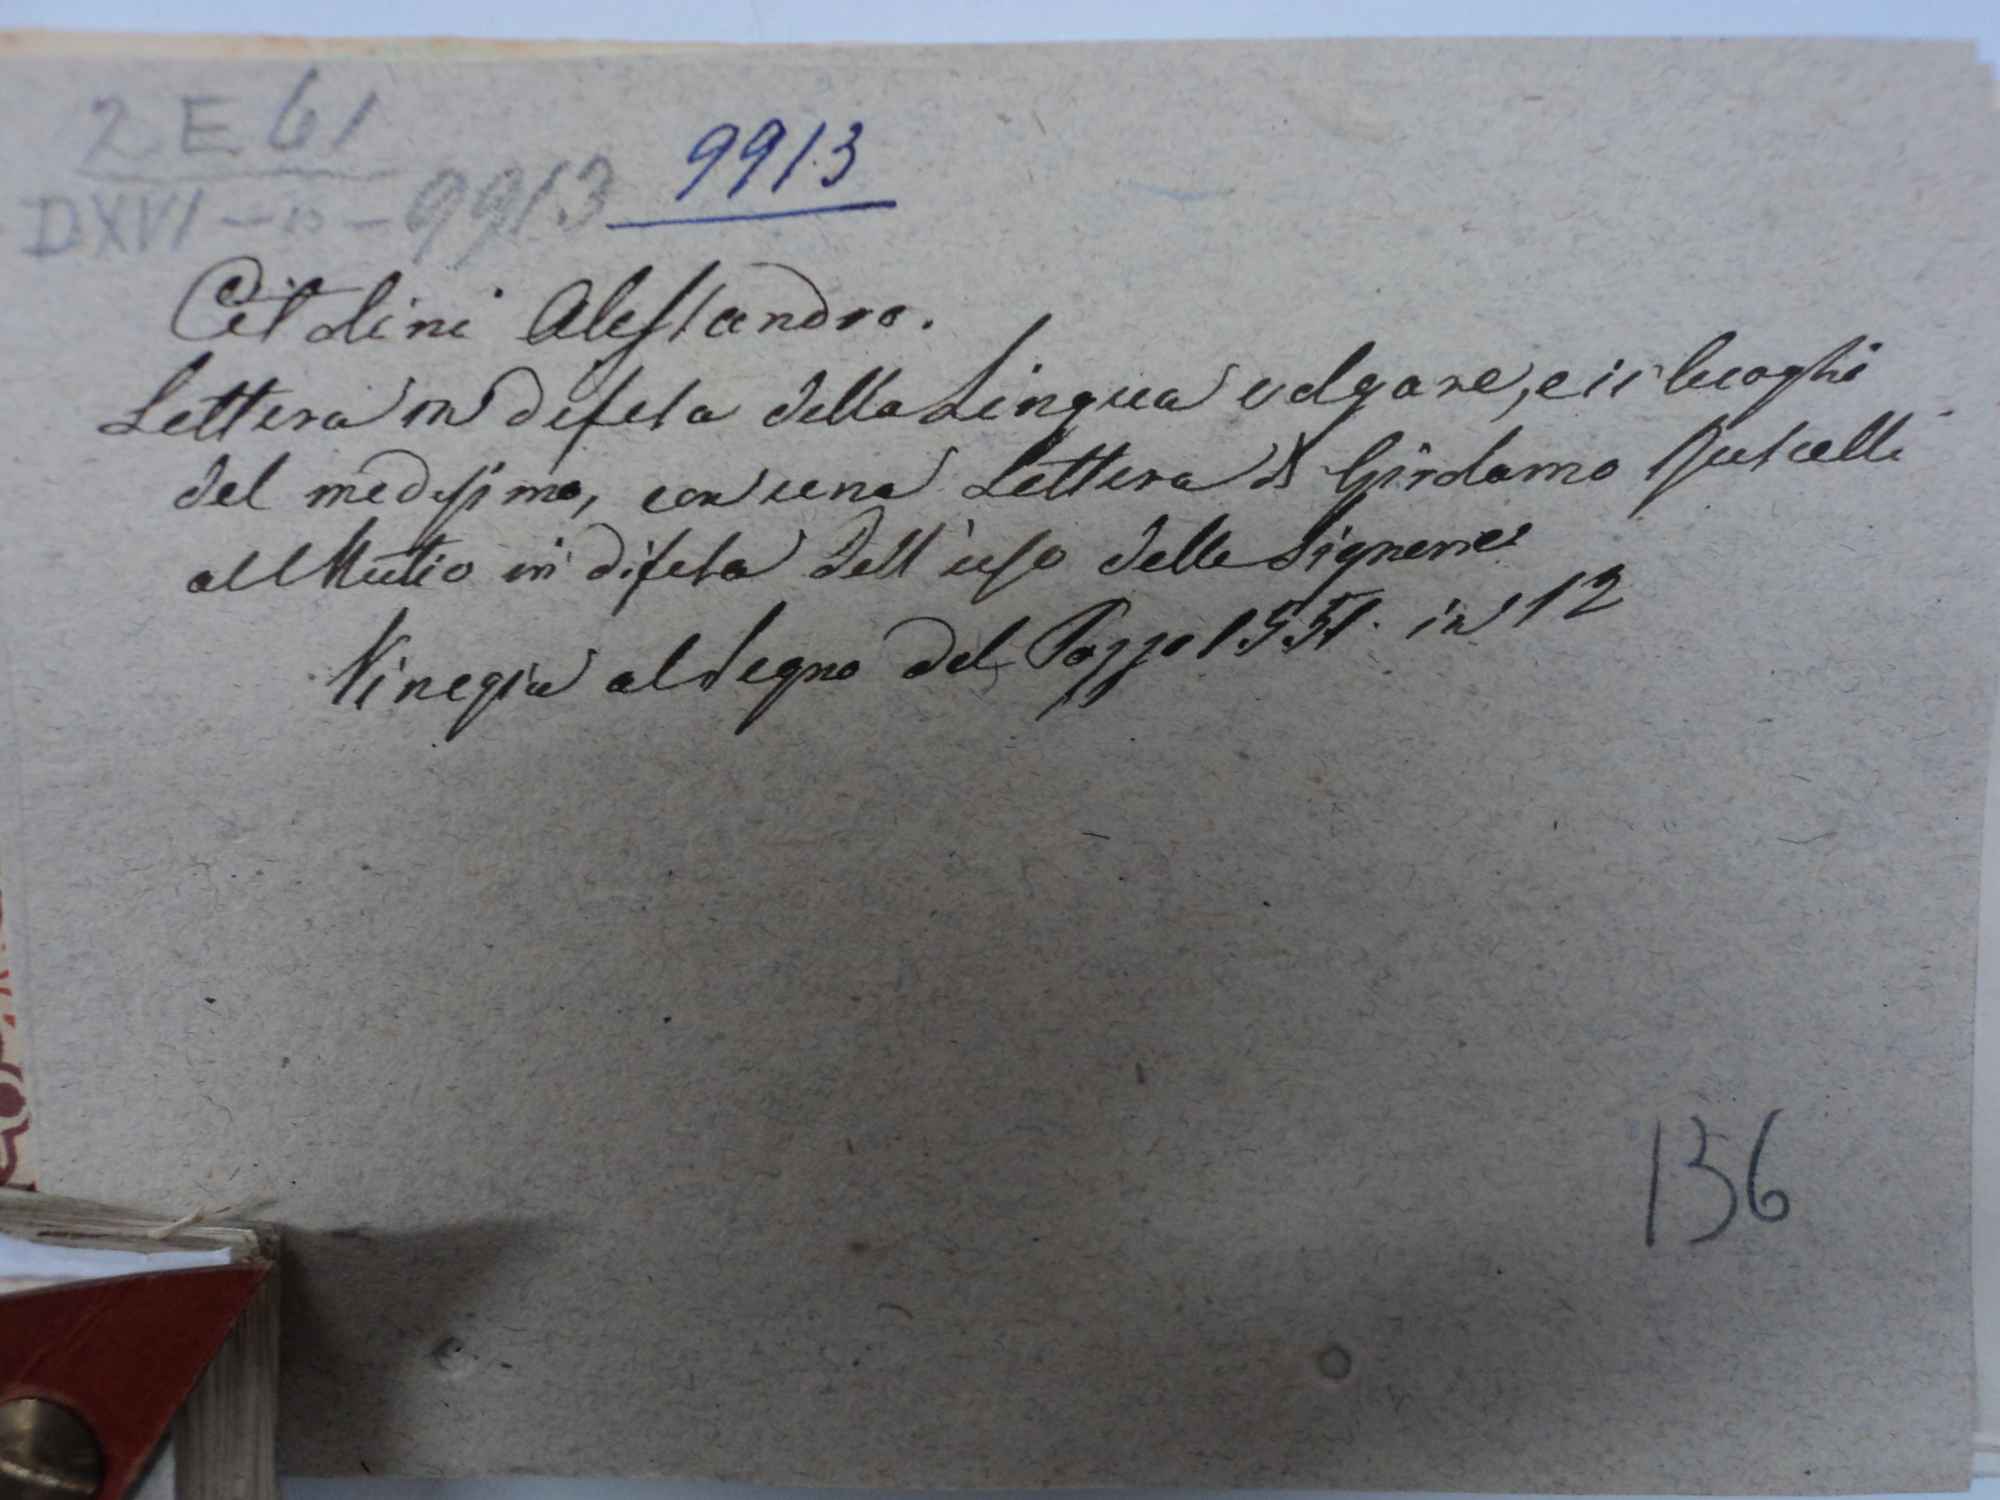 2 E 61
DXVI — 9913 9913
Citolini Alessandro.
Lettera in difesa della Lingua volgare, e i luoghi
del medesimo, con una Lettera di Girolamo Ruscelli
al Mutio in difesa dell'uso delle Signorie
Vinegia al segno del Pozzo 1551. in 12
136